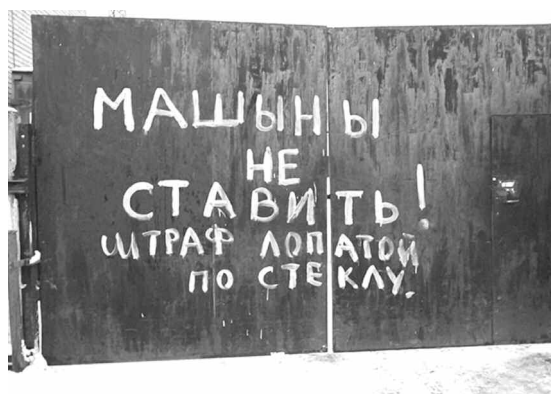 МАШЫНЫ
НЕ
СТАВИТЬ!
ШТРАФ ЛОПАТОЙ
ПО СТЕКЛУ.